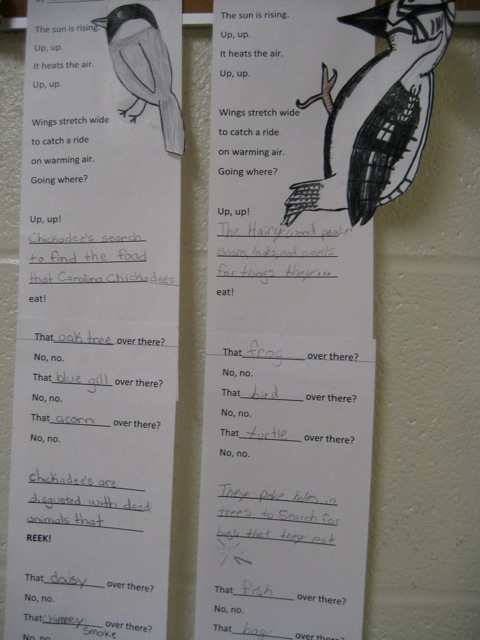 The sun is rising.
Up, up.
It heats the air.
Up, up.
Wings stretch wide
to catch a ride
on warming air.
Going where?
Up, up!
Chickadee's search
to find the food
that Carolina Chickadee's
eat!
That oak tree over there?
No, no.
That blue gill over there?
No, no.
That acorn over there?
No, no.
chickadee's are
disgusted with dead
animals that
REEK!
That daisy over there?
No, no.
That chimney smoke over there?
No, no.
The sun is rising.
Up, up.
It heats the air.
Up, up.
Wings stretch wide
to catch a ride
on warming air.
Going where?
Up, up!
The Hairy wood pecker
soars, looks, and smells
for things they...
eat!
That frog over there?
No, no.
That bird over there?
No, no.
That turtle over there?
No, no.
They poke holes in
trees to search for
bugs that they eat
That fish over there?
No, no.
That over there?